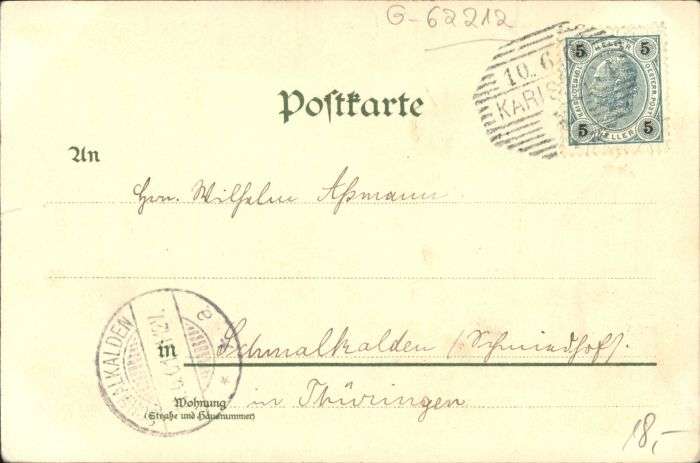 G-62212
10.6
KARLS
5 HELLER 5
5 HELLER 5
Postkarte
An
Hrn. Wilhelm Aßmann
SCHMALKALDEN
in Schmalkalden (Schmiedhof).
in Thüringen
Wohnung
(Straße und Hausnummer)
18,-